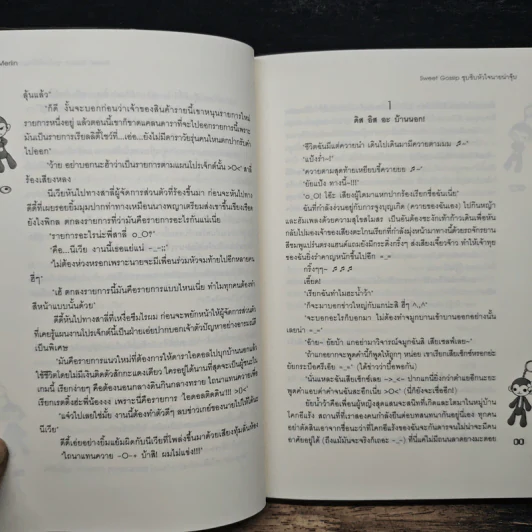 Merlin
ลุ้นแล้ว"
"ก็ดี งั้นจะบอกก่อนว่าเจ้าของสินค้ารายนี้เขาหนุนรายการใหม่
รายการหนึ่งอยู่ แล้วตอนนี้เขาก็ขาดแคลนดาราที่จะไปออกรายการนี้เพราะ
มันเป็นรายการเรียลลิตี้โชว์ที่...เอ่อ...ยังไม่มีดาราวัยรุ่นคนไหนตกปากรับคำ
ไปออก"
"ว้าย อย่าบอกนะฮ้าว่าเป็นรายการตามแผนโปรเจ็กต์นั้น >O<" สาลี่
ร้องเสียงหลง
นีเวียหันไปทางสาลี่ผู้จัดการส่วนตัวที่ร้องขึ้นมา ก่อนจะหันไปทาง
ดีดี้ที่เผยรอยยิ้มมุมปากทำทางเหมือนนางพญาเตรียมส่งเขาขึ้นเรียงเชือด
ยังไงพิกล ตกลงรายการที่ว่ามันคือรายการอะไรกันแน่เนี่ย
"รายการอะไรน่ะพี่สาลี่ o_O?"
"คือ...นีเวีย งานนี้เธอแย่แน่ -_-;;"
"ไม่ต้องห่วงหรอกเพราะนายจะมีเพื่อนร่วมหัวจมท้ายไปอีกหลายคน
ฮึๆ"
"เฮ้ ตกลงรายการนี้มันคือรายการแบบไหนเนี่ย ทำไมทุกคนต้องทำ
สีหน้าแบบนั้นด้วย"
ดีดี้หันไปทางสาลี่ที่เหงื่อซึมไรผม ก่อนจะพยักหน้าให้ผู้จัดการส่วนตัว
ที่เคยรู้แผนงานโปรเจ็กต์นี้เป็นฝ่ายเอ่ยปากบอกเจ้าตัวปัญหาอย่างอารมณ์ดี
เป็นพิเศษ
"มันคือรายการแนวใหม่ที่ต้องการให้ดาราไอดอลไปบุกบ้านนอกแล้ว
ใช้ชีวิตโดยไม่มีเงินติดตัวสักกะแดงเดียว ใครอยู่ได้นานที่สุดจะเป็นผู้ชนะใน
เกมนี้ เรียกง่ายๆ คือต้องนอนกลางดินกินกลางทราย โถนาแทนควายเพื่อ
เรียกเรตติ้งฮ่ะพี่น้องงง เพราะนี่คือรายการ ไอดอลติดดิน!!! >O<"
"แจ๋วไปเลยใช่มั้ย งานนี้ต้องทำตัวดีๆ ลบข่าวเกย์ของนายไปให้ได้นะ
นีเวีย"
ดีดี้เอ่ยอย่างยิ้มแย้มผิดกับนีเวียที่โพล่งขึ้นมาด้วยเสียงทุ้มลั่นห้อง
"ไถนาแทนควาย -O-++ บ้าสิ! ผมไม่แข่ง!!!"
Sweet Gossip ซุบซิบหัวใจนายน่าซุ้บ
1
คิส อีส อะ บ้านนอก!
"ชีวิตฉันมีแต่ความน่า เดินไปเดินมามีควายตามมม ♬~"
"แป้งร่ำ~!"
"ควายตามสุดท้ายเหยียบขี้ควายยย ♬~"
"ยัยแป้ง ทางนี้~!!!"
"o_O! โอ๊ะ เสียงผู้ใดมาแหกปากร้องเรียกชื่อฉันเนี่ย"
ฉันที่กำลังง่วนอยู่กับการจูงบุญเกิด (ควายของฉันเอง) ไปกินหญ้า
และฮัมเพลงด้วยความสุโขสโมสร เป็นอันต้องชะงักเท้าก้าวเดินเพื่อหัน
กลับไปมองเจ้าของเสียงตะโกนเรียกที่กำลังมุ่งหน้ามาทางนี้ด้วยรถจักรยาน
สีชมพูแปร๋นตรงแฮนด์แถมยังมีกระดิ่งกริ๊งๆ ส่งเสียงเจี๊ยวจ๊าว ทำให้เจ้าทุย
ของฉันยิ่งรำคาญหนักขึ้นไปอีก =_=
กริ๊งๆๆ~ ♬♬♬
เอี๊ยด!
"เรียกฉันทำไมฮะน้ำว้า"
"ก็จะมาบอกข่าวใหญ่กับแกน่ะสิ ฮี่ๆ ^.,^"
"จะบอกอะไรก็บอกมา ไม่ต้องทำจมูกบานเข้าบานออกอย่างนั้น
เลยน่า =_="
"อ๊าย~ ยัยบ้า แกอย่ามาวิจารณ์จมูกฉันสิ เสียเซลฟ์เลย~"
"ถ้าแกอยากจะพูดคำนี้ก็พูดให้ถูกๆ หน่อย เขาเรียกเสียเซ็กซ์หรอกย่ะ
ยัยกระบือศรีเอ๊ย =_=" (ได้ข่าวว่าบื้อพอกัน)
"นั่นแหละฉันเสียเซ็กซ์เลย ~>_<~ ปากแกนี่ยิ่งกว่าค่ายอีกนะยะ
พูดแค่คำแต่ละคำจี๊ดฉันสะอึกนี่แน่ะ >O<" (นี่ก็ยังจะเชื่ออีก!)
ยัยน้ำว้าคือเพื่อนผู้หญิงสุดแสนจะสนิทที่เกิดและโตมาในหมู่บ้าน
โคกอีแร้ง สถานที่ที่เราสองคนกำลังยืนค่อนสนทนากันอยู่นี่เอง ทุกคน
อย่าตัดสินเอาจากชื่อนะว่าที่โคกอีแร้งของฉันจะกันดารจนไม่น่าจะมีคน
อาศัยอยู่ได้ (ถึงแม้มันจะจริงก็เถอะ -_-) ที่นี่แค่ไม่มีถนนลาดยางมะตอย